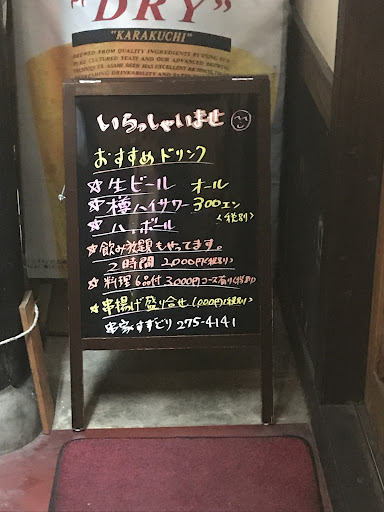 "DRY"
"KARAKUCHI"
BREWED FROM QUALITY INGREDIENTS BY USING OUR
PURE CULTURED YEAST AND OUR ADVANCED BREWING
TECHNIQUES. ASAHI BEER HAS EXCELLENT RICHNESS,
REFRESHING DRINKABILITY AND
いらっしゃいませ
おすすめドリンク
☆生ビール オール
☆種ハイサワー 300エン
☆ハイボール <税別>
☆飲み放題もやってます。
2時間 2,000円<税別>
☆料理6品付 3,000円コース有り<税別>
☆串揚げ盛り合せ 1,000円<税別>
串家すずとり 275-4141